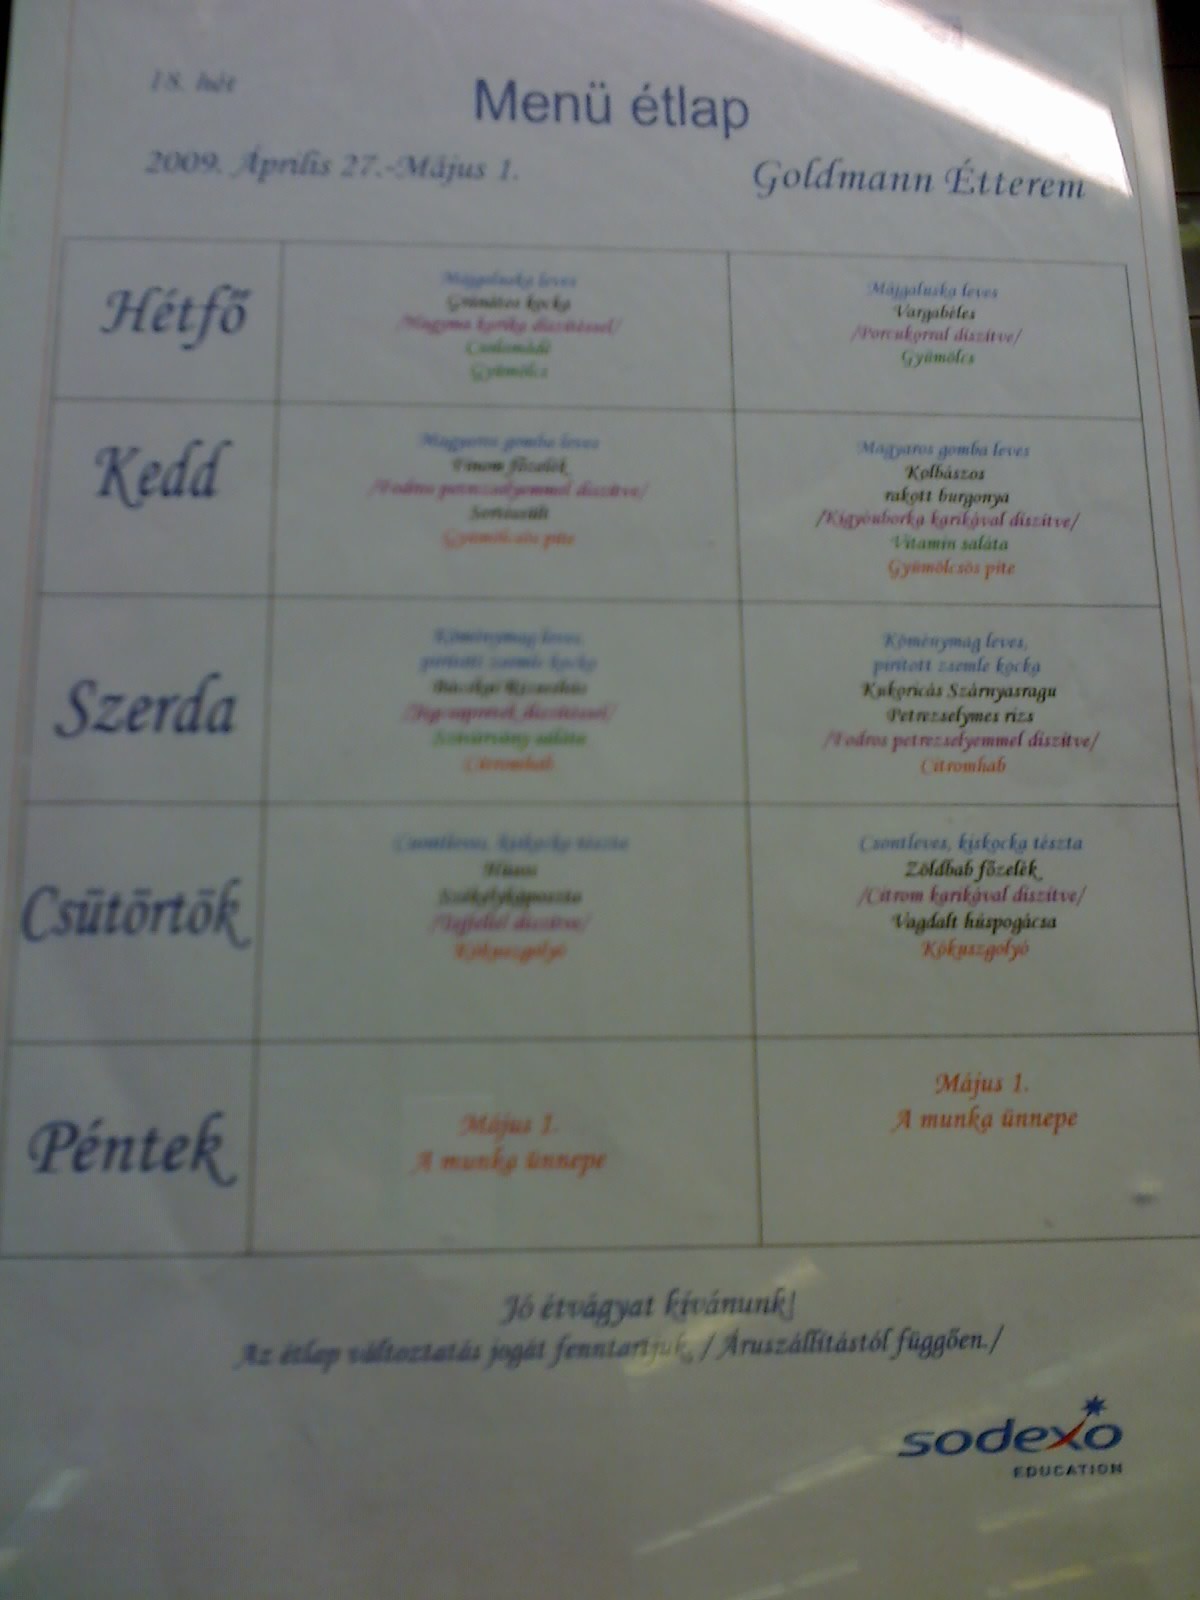 18. hét
Menü étlap
2009. Április 27.-Május 1.
Goldmann Étterem
Hétfő
Májgaluska leves
Gránátos kocka
/Hagyma karika díszítéssel/
Csalamádé
Gyümölcs
Májgaluska leves
Vargabéles
/Porcukorral díszítve/
Gyümölcs
Kedd
Magyaros gomba leves
Finom főzelék
/Fodros petrezselyemmel díszítve/
Sertéssült
Gyümölcsös pite
Magyaros gomba leves
Kolbászos
rakott burgonya
/Kígyóuborka karikával díszítve/
Vitamin saláta
Gyümölcsös pite
Szerda
Köménymag leves,
pirított zsemle kocka
díszítéssel/
Szivárvány saláta
Citromhab
Köménymag leves,
pirított zsemle kocka
Kukoricás Szárnyasragu
Petrezselymes rizs
/Fodros petrezselyemmel díszítve/
Citromhab
Csütörtök
Csontleves, kiskocka tészta
Húsos
Székelykáposzta
/Tejföllel díszítve/
Kókuszgolyó
Csontleves, kiskocka tészta
Zöldbab főzelék
/Citrom karikával díszítve/
Vagdalt húspogácsa
Kókuszgolyó
Péntek
Május 1.
A munka ünnepe
Május 1.
A munka ünnepe
Jó étvágyat kívánunk!
Az étlap változtatás jogát fenntartjuk. / Áruszállítástól függően./
sodexo
EDUCATION